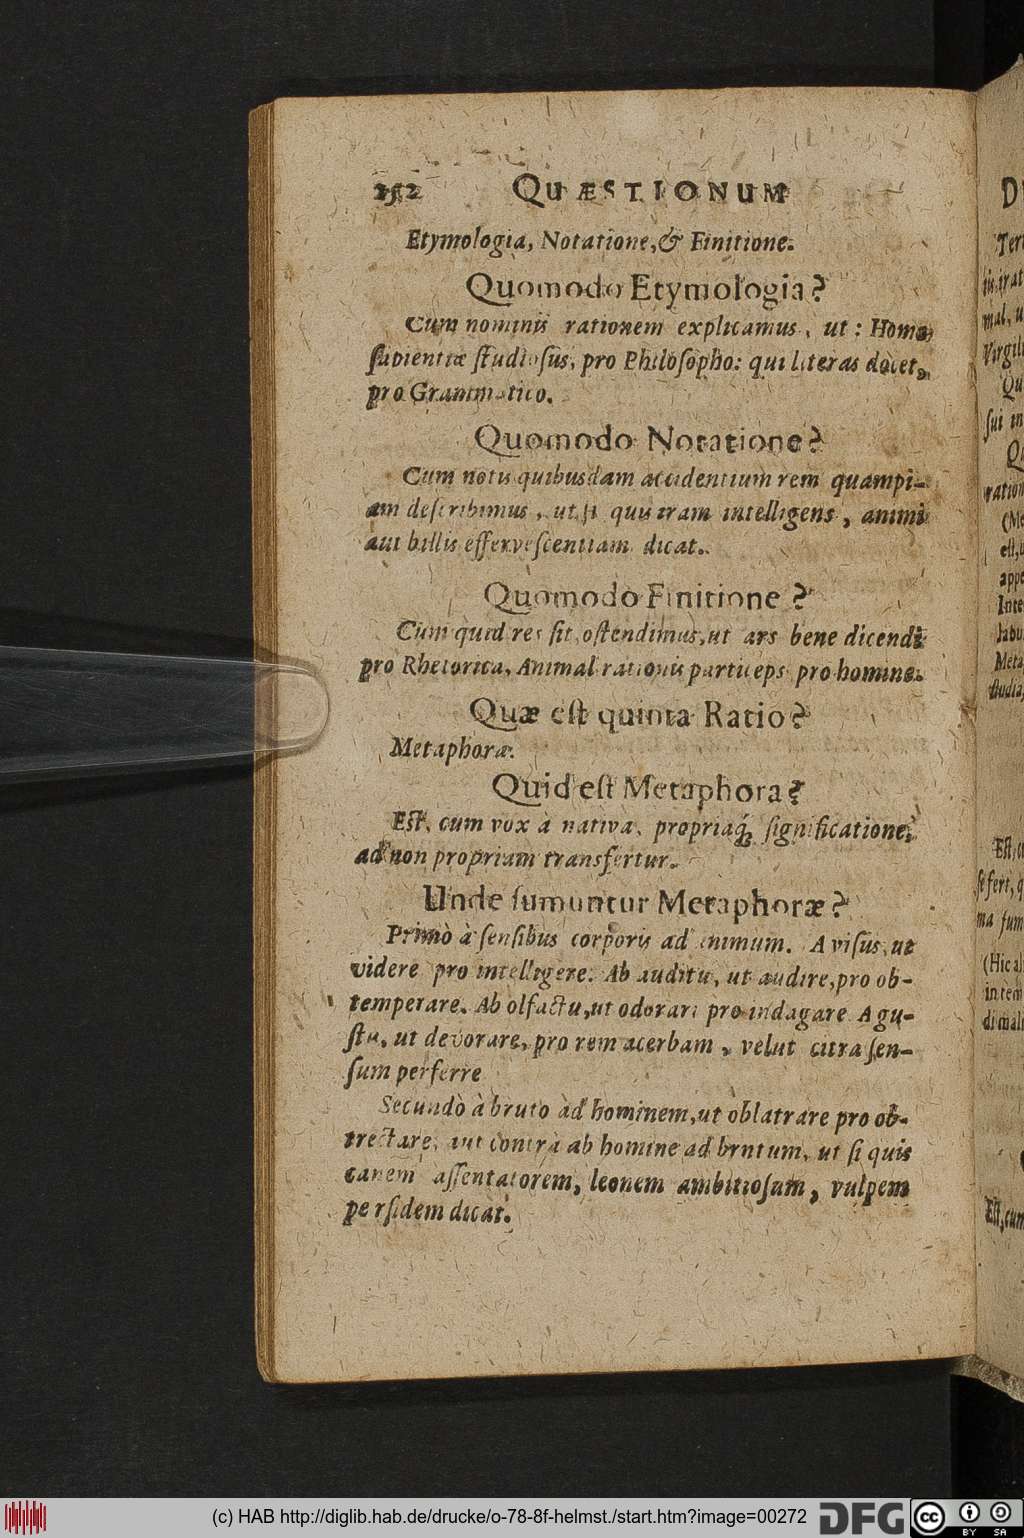 252 QUÆSTIONUM
Etymologia, Notatione, & Finitione.
Quomodo Etymologia?
Cum nominis rationem explicamus, ut: Homo
sapientiæ studiosus, pro Philosopho: qui literas docet,
pro Grammatico.
Quomodo Notatione?
Cum notis quibusdam accidentium rem quampi-
am describimus, ut, si quis iram intelligens, animi
aut billis effervescentiam dicat.
Quomodo Finitione?
Cum quid res sit, ostendimus, ut ars bene dicendi
pro Rhetorica, Animal rationis particeps pro homine.
Quæ est quinta Ratio?
Metaphoræ.
Quid est Metaphora?
Est, cum vox à nativa, propriaq́; significatione,
ad non propriam transfertur.
Unde sumuntur Metaphoræ?
Primò à sensibus corporis ad animum. A visus, ut
videre pro intelligere. Ab auditu, ut audire, pro ob-
temperare. Ab olfactu, ut odorari pro indagare A gu-
stu, ut devorare, pro rem acerbam, velut citra sen-
sum perferre
Secundò à bruto ad hominem, ut oblatrare pro ob-
trectare, aut contrà ab homine ad brutum, ut si quis
canem assentatorem, leonem ambitiosum, vulpem
persidem dicat.
(c) HAB http://diglib.hab.de/drucke/o-78-8f-helmst./start.htm?image=00272 DFG CC BY SA